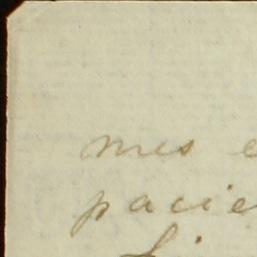 mes e
pacie
Li